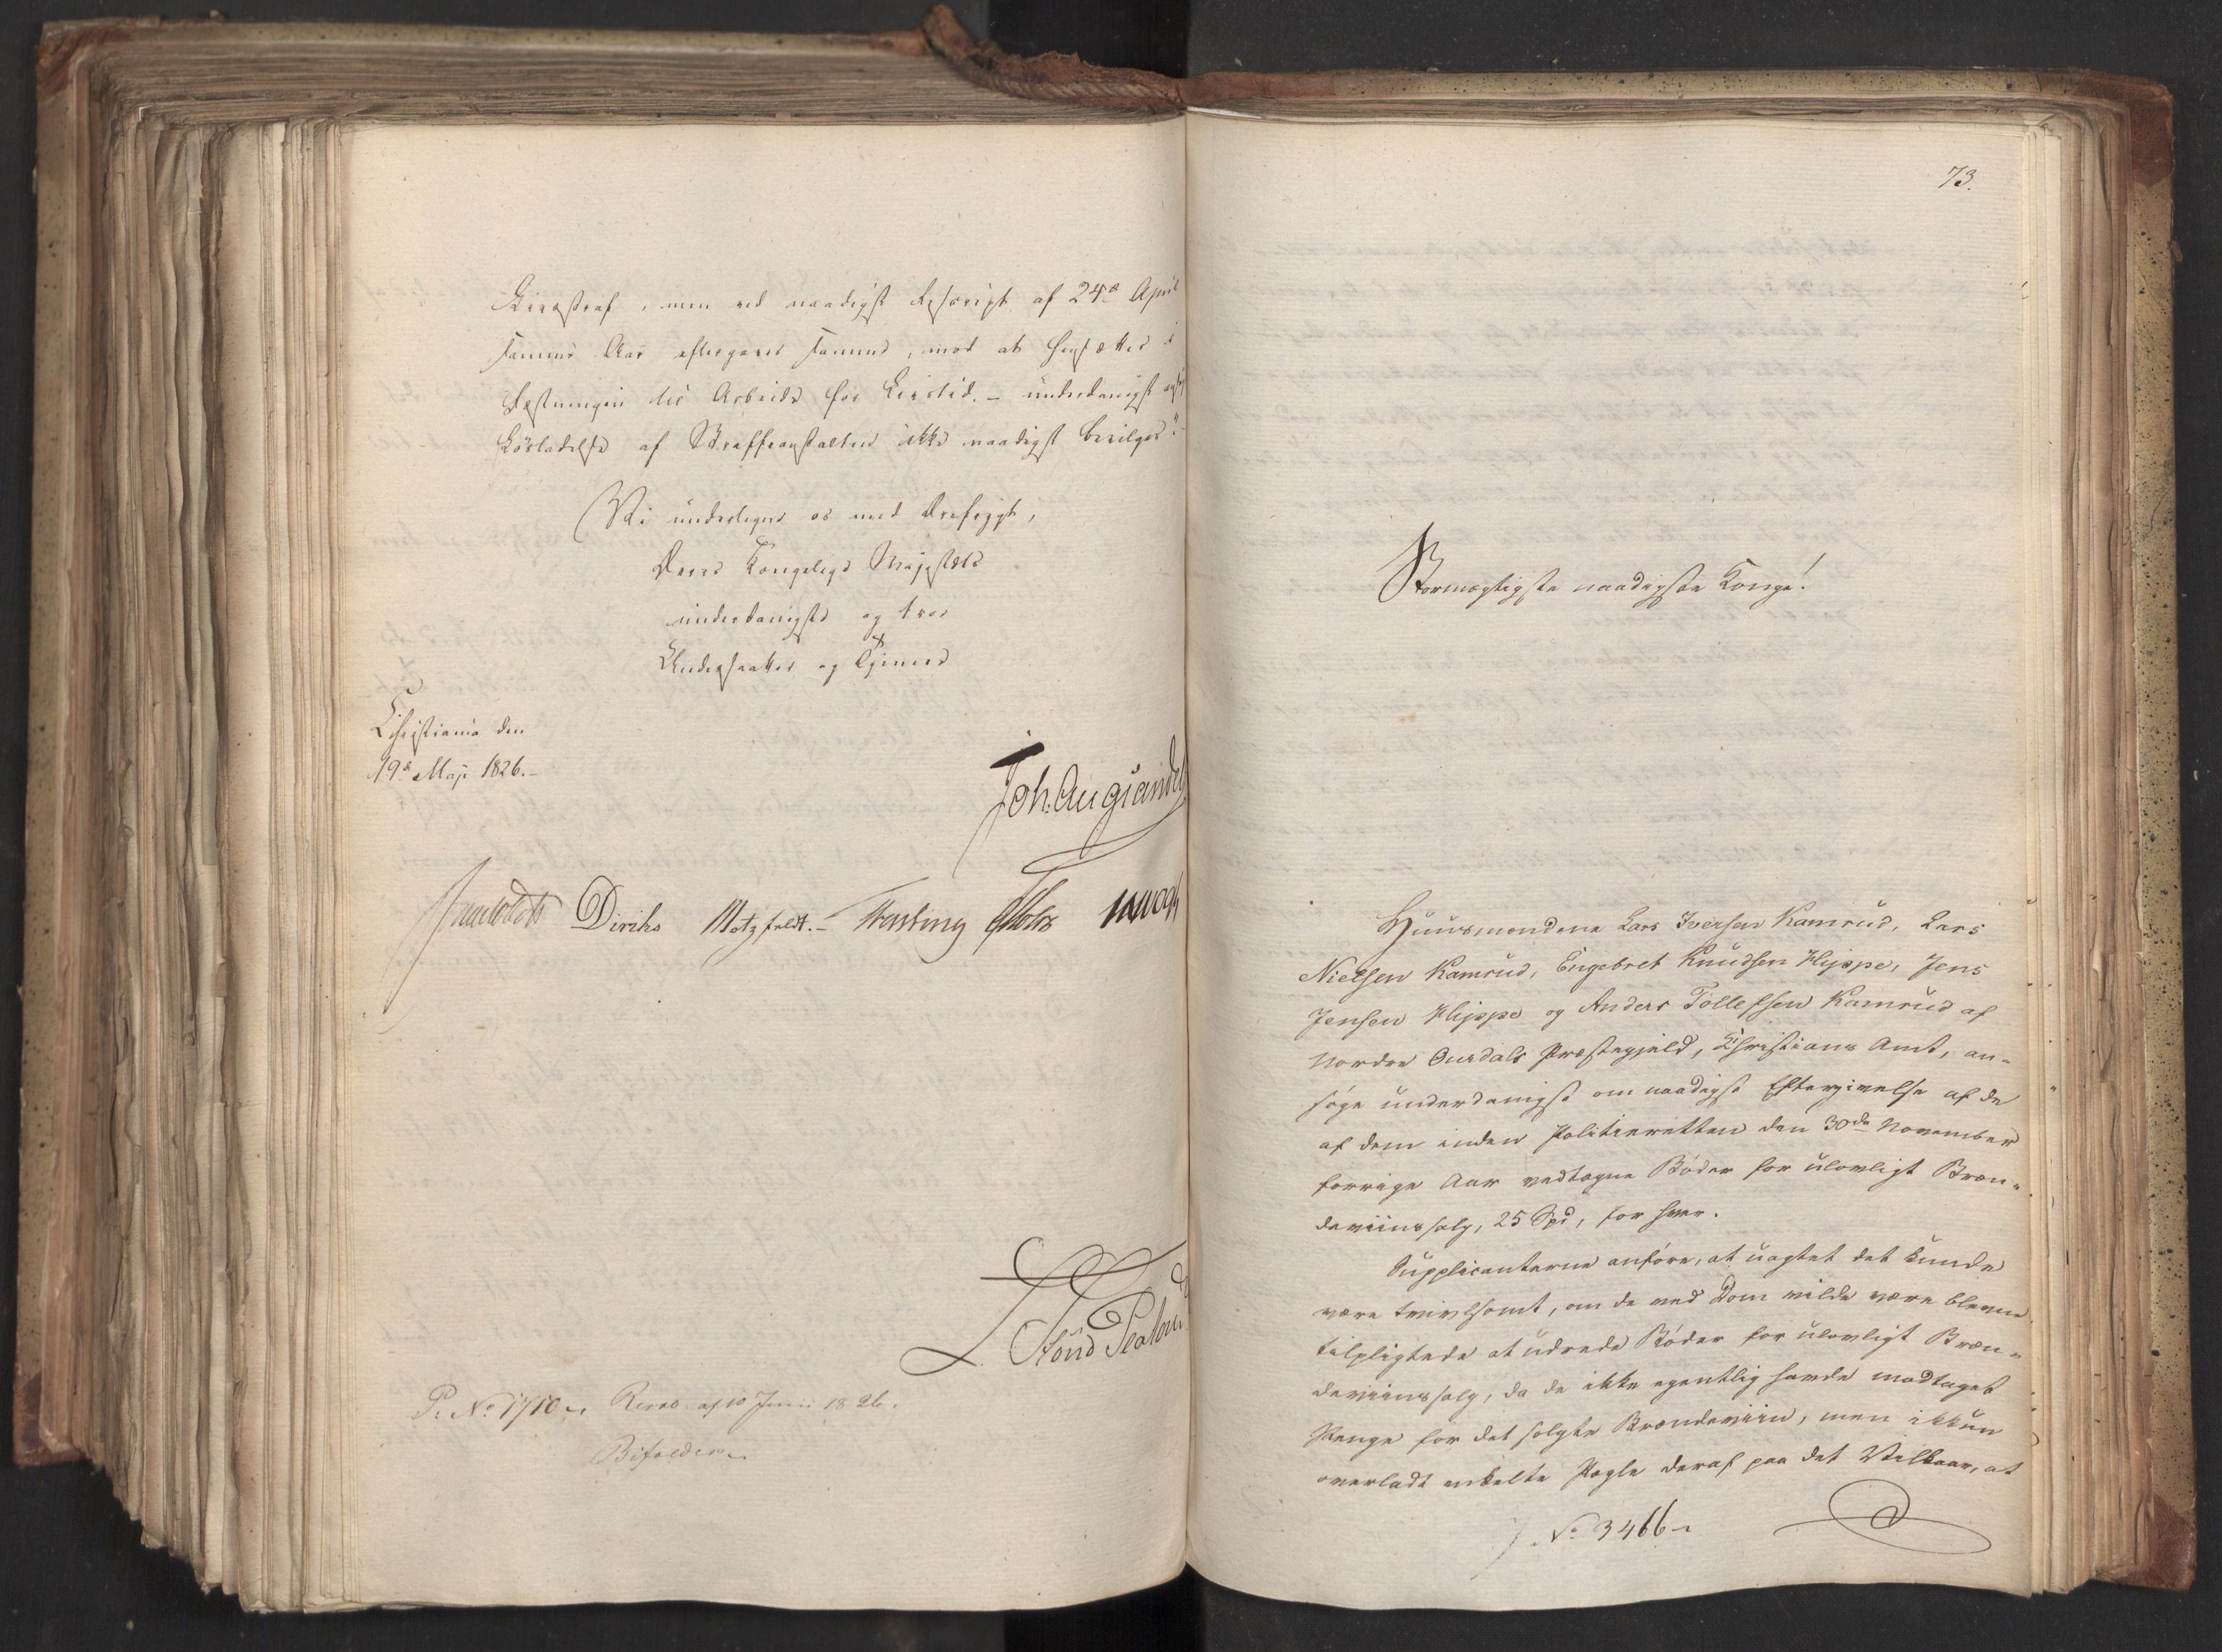 Livsstraf, men ved naadigst Rescript af 24de April
samme Aar eftergaves samme, mod at hensættes i
Fæstningen til Arbeide for Livstid. – underdanigst
Løsladelse af Straffeanstalten ikke naadigst bevilges."
Vi underskrive os med Ærefrygt,
Deres Kongelige Majestæts
underdanigste og troe
Undersaatter og Tjenere
Christiania den
19de Maji 1826.–
Joh. Aug: Sandels
Diriks Motzfeldt.– Fasting Holst
P. No 1710 Resol. af 10 Junii 1826.
Bifaldes
73.
Stormægtigste naadigste Konge!
Huusmændene Lars Iversen Kamrud, Lars
Nielsen Kamrud, Engebret Knudsen Klippe, Jens
Jensen Klippe og Anders Tollefsen Kamrud af
Nordre Ourdals Præstegjeld, Christians Amt, an-
søge underdanigst om naadigst Eftergivelse af de
af dem inden Politieretten den 30de November
forrige Aar vedtagne Bøder for ulovligt Bræn-
deviinssalg, 25 Spd, for hver.
Supplicanterne anføre, at uagtet det kunde
være tvivlsomt, om de ved Dom vilde være blevne
tilpligtede at udrede Bøder for ulovligt Bræn-
deviinssalg, da de ikke egentlig havde modtaget
Penge for det solgte Brændeviin, men ikkun
overladt enkelte Pægle deraf paa det Vilkaar, at
J. No 3466